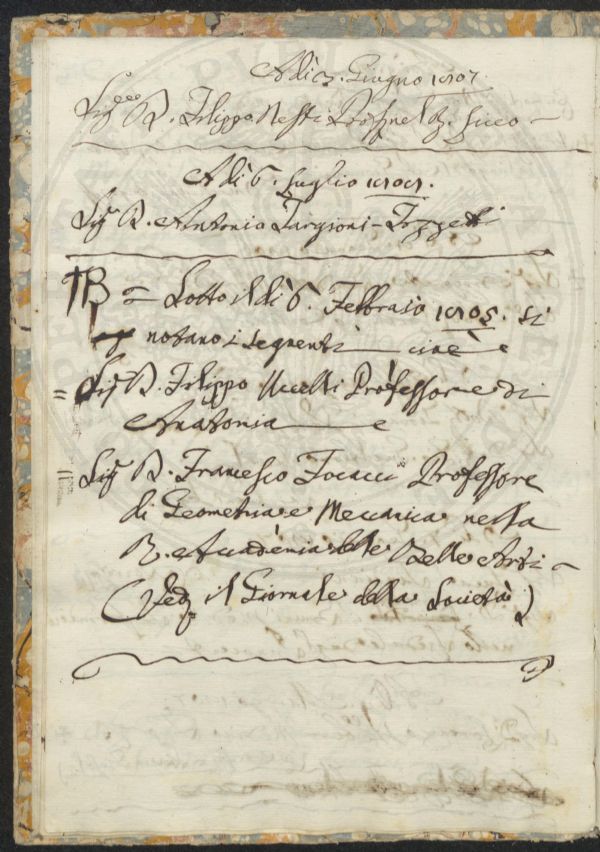 Adì 3. Giugno 1807.
Sig.re D. Filippo Nesti
Adì 6. Luglio 1807.
Sig.r D. Antonio Targioni-Tozzetti
NB = Sotto il dì 6. Febbraio 1805. si
notano i seguenti cioè
= Sig.r D. Filippo Uccelli Professore di
Anatomia
Sig.r D. Francesco Focacci Professore
di Geometria e Meccanica nella
R. Accademia delle Belle Arti
(Ved. il Giornale della Società)